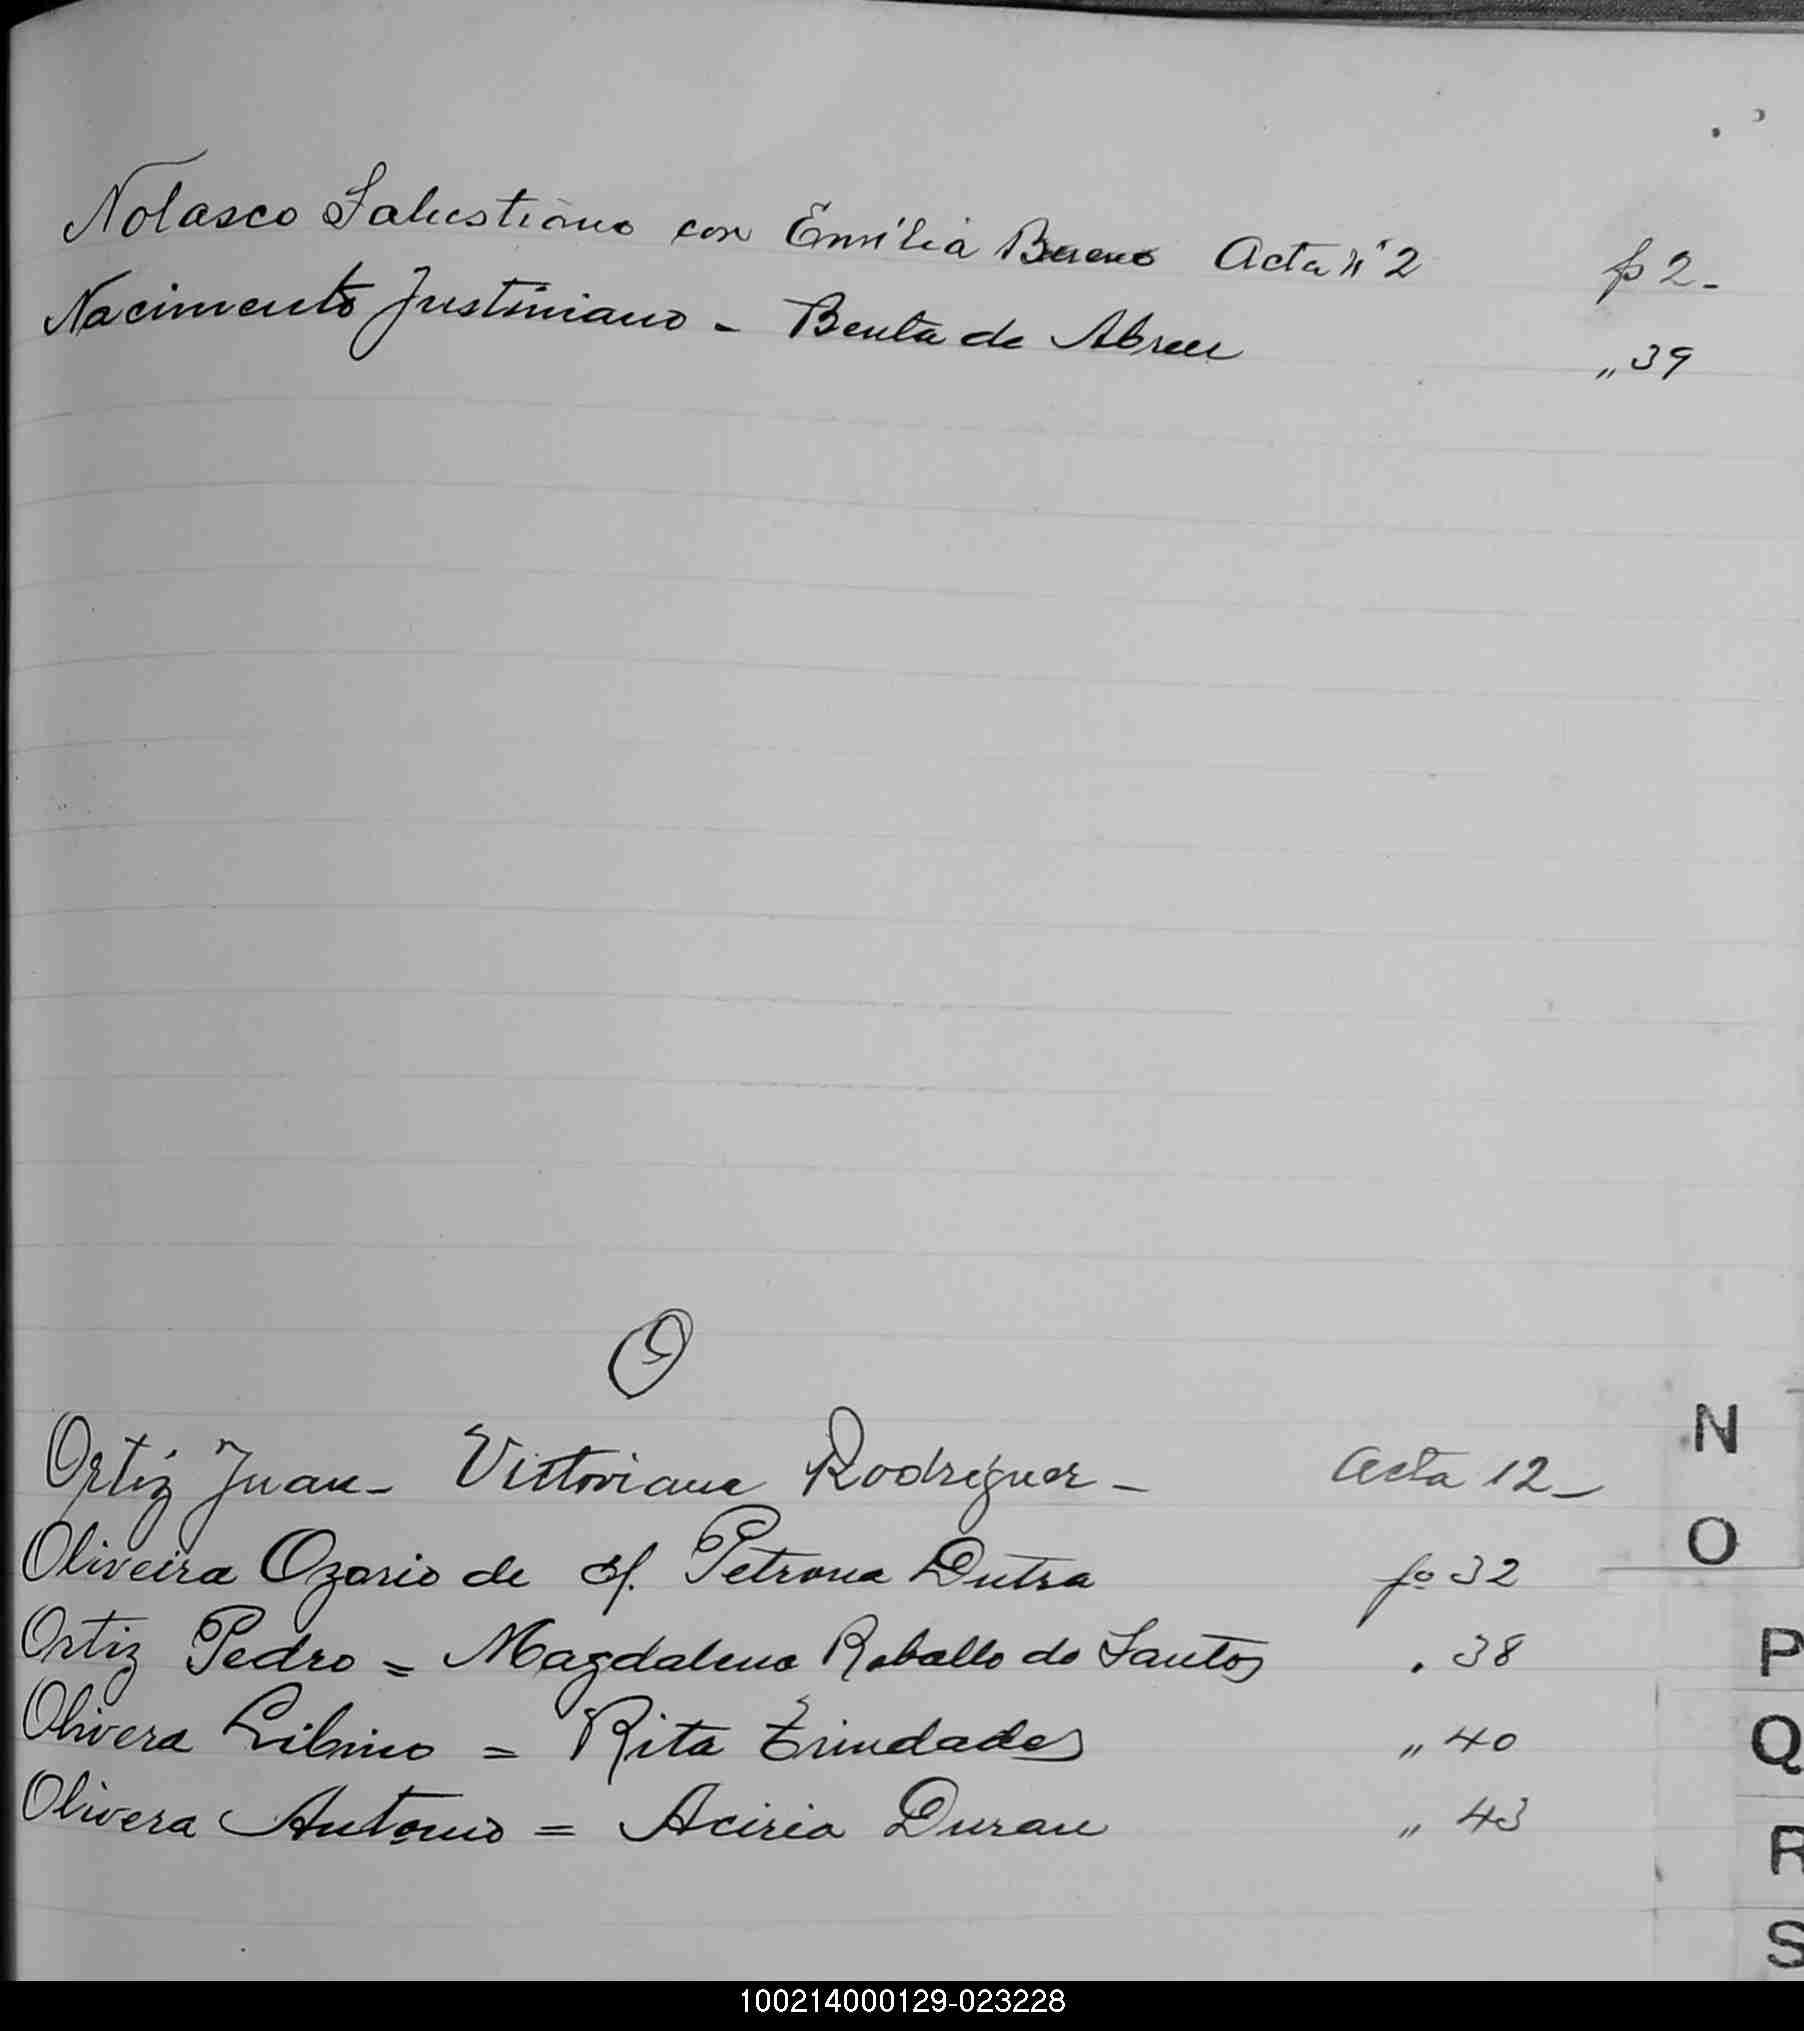 Nolasco Salustiano con Emilia Bueno Acta nº 2 fº 2-
Nacimento Justiniano - Benta de Abreu „ 39
O
Ortiz Juan - Victoriana Rodriguez - Acta 12-
Oliveira Ozorio de c/. Petrona Dutra fº 32
Ortiz Pedro = Magdalena Raballo do Santos . 38
Olivera Libinio = Rita Trindades „ 40
Olivera Antonio = Aciria Duran „ 43
N
O
P
Q
R
S
100214000129-023228